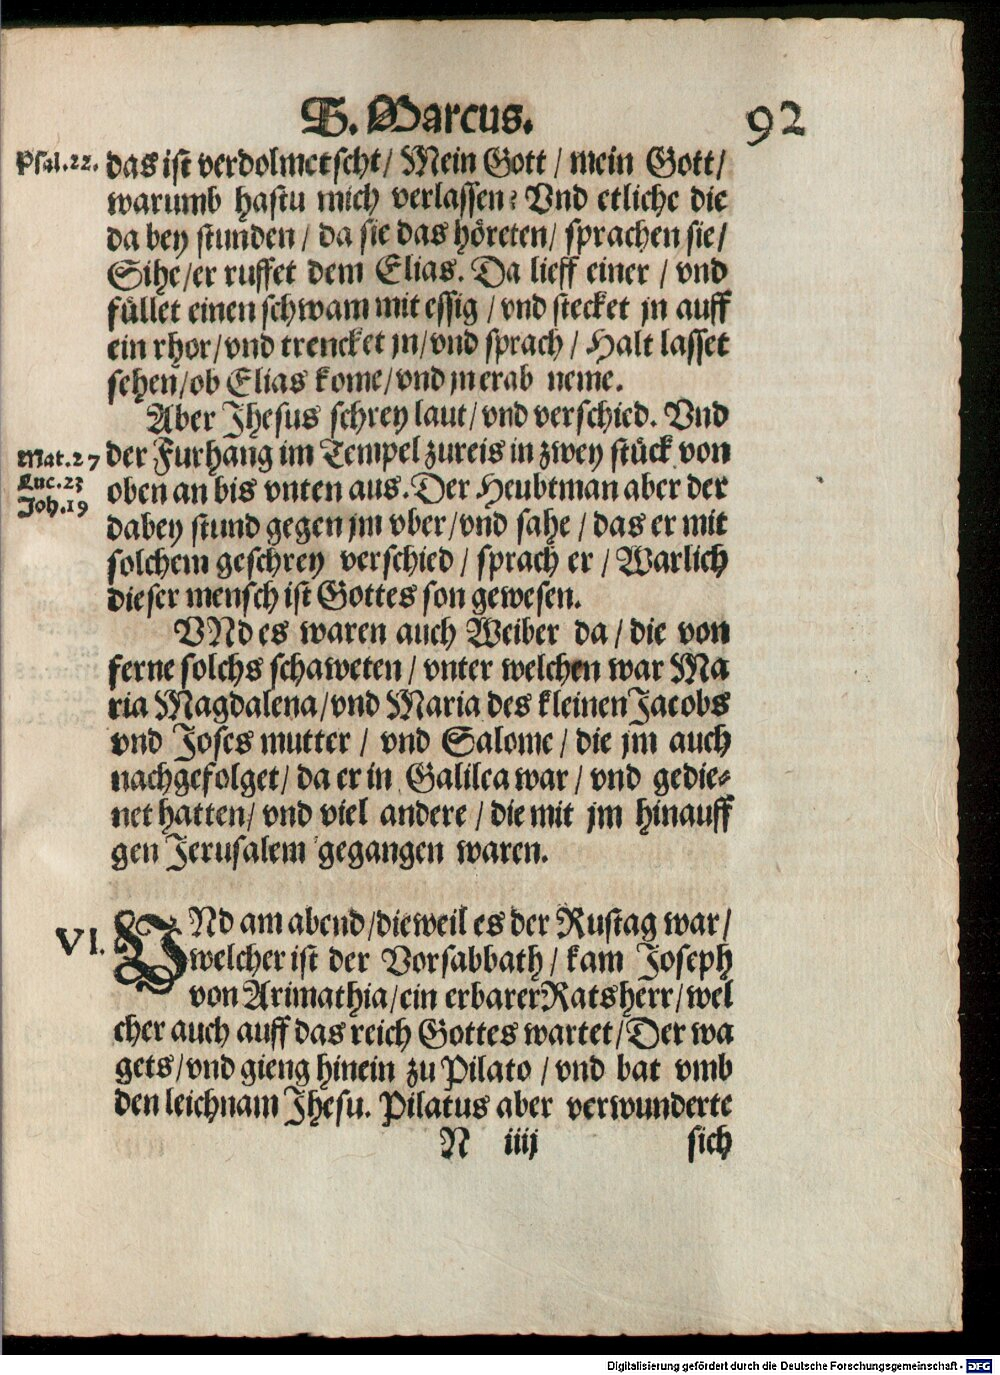 S. Marcus. 92
Psal.22. das ist verdolmetscht/ Mein Gott / mein Gott/
warumb hastu mich verlassen? Vnd etliche die
da bey stunden / da sie das höreten/ sprachen sie/
Sihe/er ruffet dem Elias. Da lieff einer / vnd
füllet einen schwam mit essig / vnd stecket jn auff
ein rhor/vnd trencket jn/vnd sprach / Halt lasset
sehen/ob Elias kome/vnd jn erab neme.
Aber Jhesus schrey laut/vnd verschied. Vnd
Mat.27 der Furhang im Tempel zureis in zwey stück von
Luc.23 oben an bis vnten aus. Der Heubtman aber der
Joh.19 dabey stund gegen jm vber/vnd sahe / das er mit
solchem geschrey verschied / sprach er / Warlich
dieser mensch ist Gottes son gewesen.
VNd es waren auch Weiber da / die von
ferne solchs schaweten / vnter welchen war Ma
ria Magdalena/vnd Maria des kleinen Jacobs
vnd Joses mutter / vnd Salome / die jm auch
nachgefolget/ da er in Galilea war / vnd gedie⸗
net hatten/ vnd viel andere / die mit jm hinauff
gen Jerusalem gegangen waren.
VI. VNd am abend/dieweil es der Rustag war/
welcher ist der Vorsabbath / kam Joseph
von Arimathia/ein erbarer Ratsherr/wel
cher auch auff das reich Gottes wartet/Der wa
gets/vnd gieng hinein zu Pilato / vnd bat vmb
den leichnam Jhesu. Pilatus aber verwunderte
N iiij sich
Digitalisierung gefördert durch die Deutsche Forschungsgemeinschaft - DFG